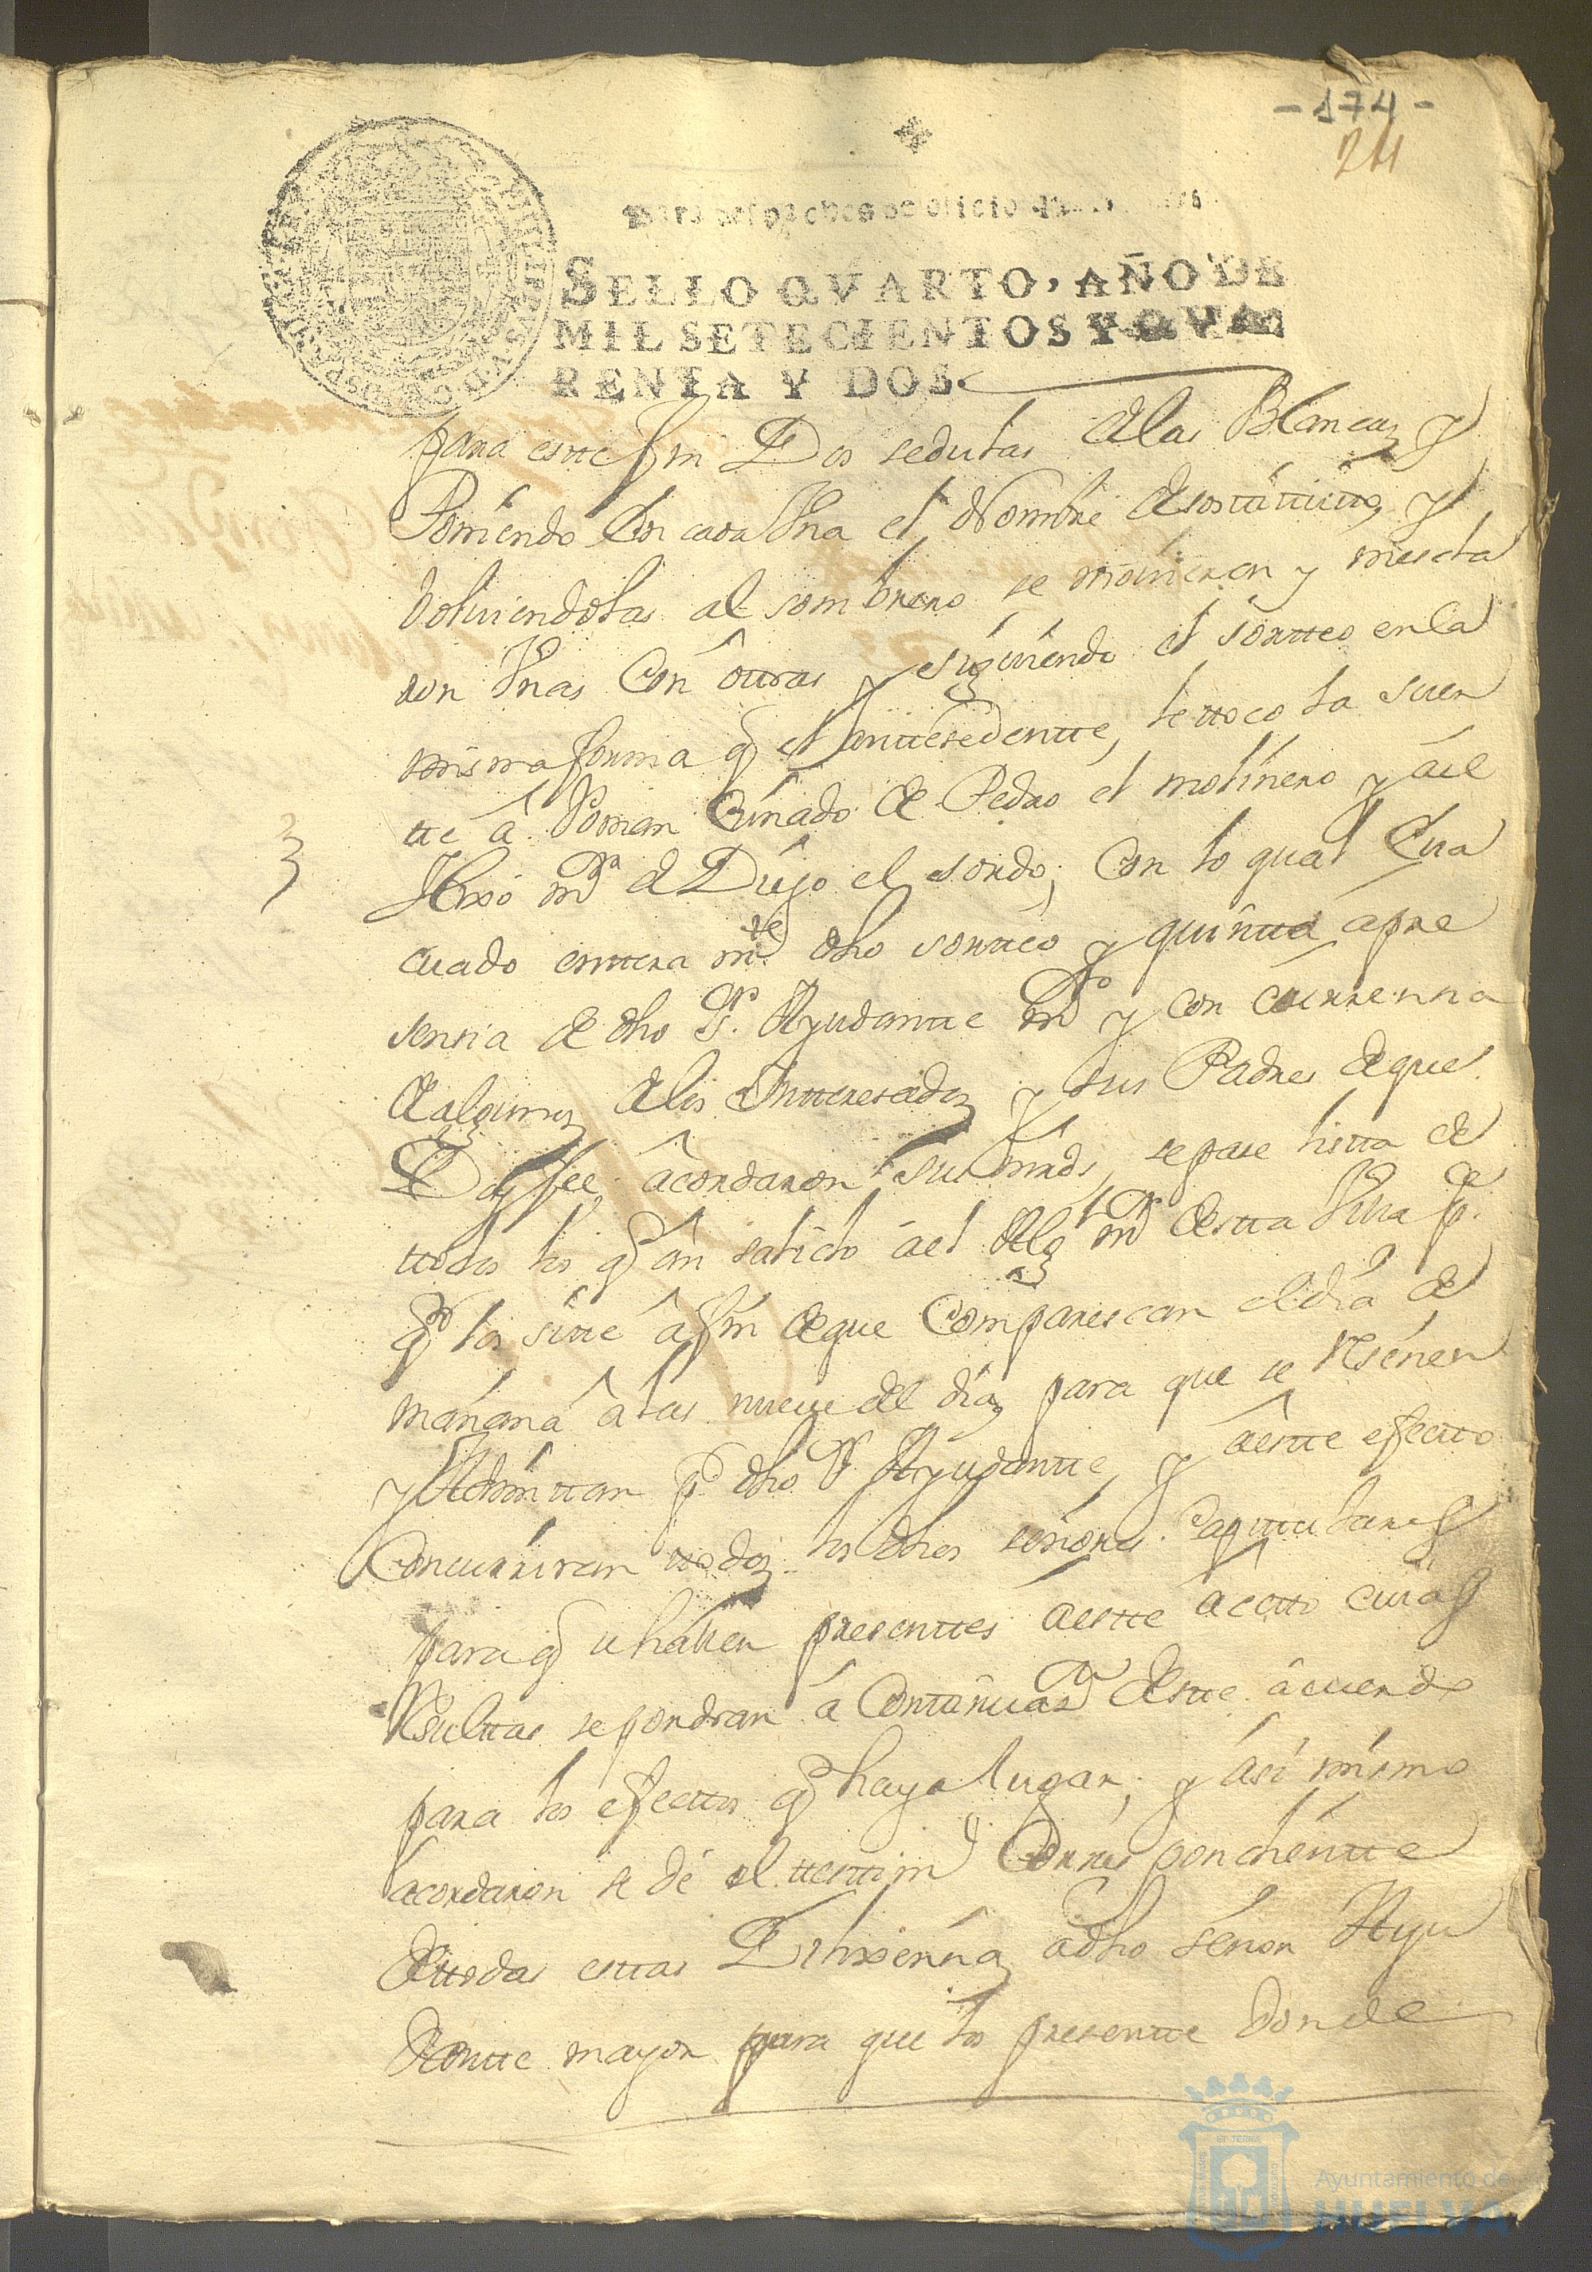 -174-
24
Para despachos de oficio
SELLO QVARTO, AÑO DE
MIL SETECIENTOS Y QVA
RENTA Y DOS.
para estte fin Dos sedulas de las Blancas y
Poniendo En cada Vna el Nombre de
volviendolas al sombrero se movieron y mescla
ron Vnas Con ottras y siguiendo el sortteo en la
misma forma q el anttesedentte, le ttoco la suer
tte â Roman Cuñado de Pedro el molinero y a
Hixo de Diego el sordo; Con lo qual Eva
cuado entteramte dho sortteo y quintta apre
sensia de dho Sr. Ayudantte y con
de algunos de los Ynteresados y sus Padres de que
Doy fee; acordaron sus mrds, se pase listta de
ttodos los q an salido al Algl mr destta Villa pa
q los sitte a fin de que Comparescan el dia de
mañana â las nueve del dia, para que se Reseñen
y Admittan pr dho Sr Ayudantte, y a estte efectto
Concurriran ttodos los dhos señores Capittulares
para q se hallen presenttes a estte actto cuias
Resulttas se pondran â Conttinuazn destte acuerdo
para los efecttos q haya lugar; y asi mismo
acordaron se dé el ttesttimo Correspondientte
de ttodas esttas Dilixensias a dho señor Ayu
dantte mayor para que lo presentte Donde
Ayuntamiento de
HUELVA